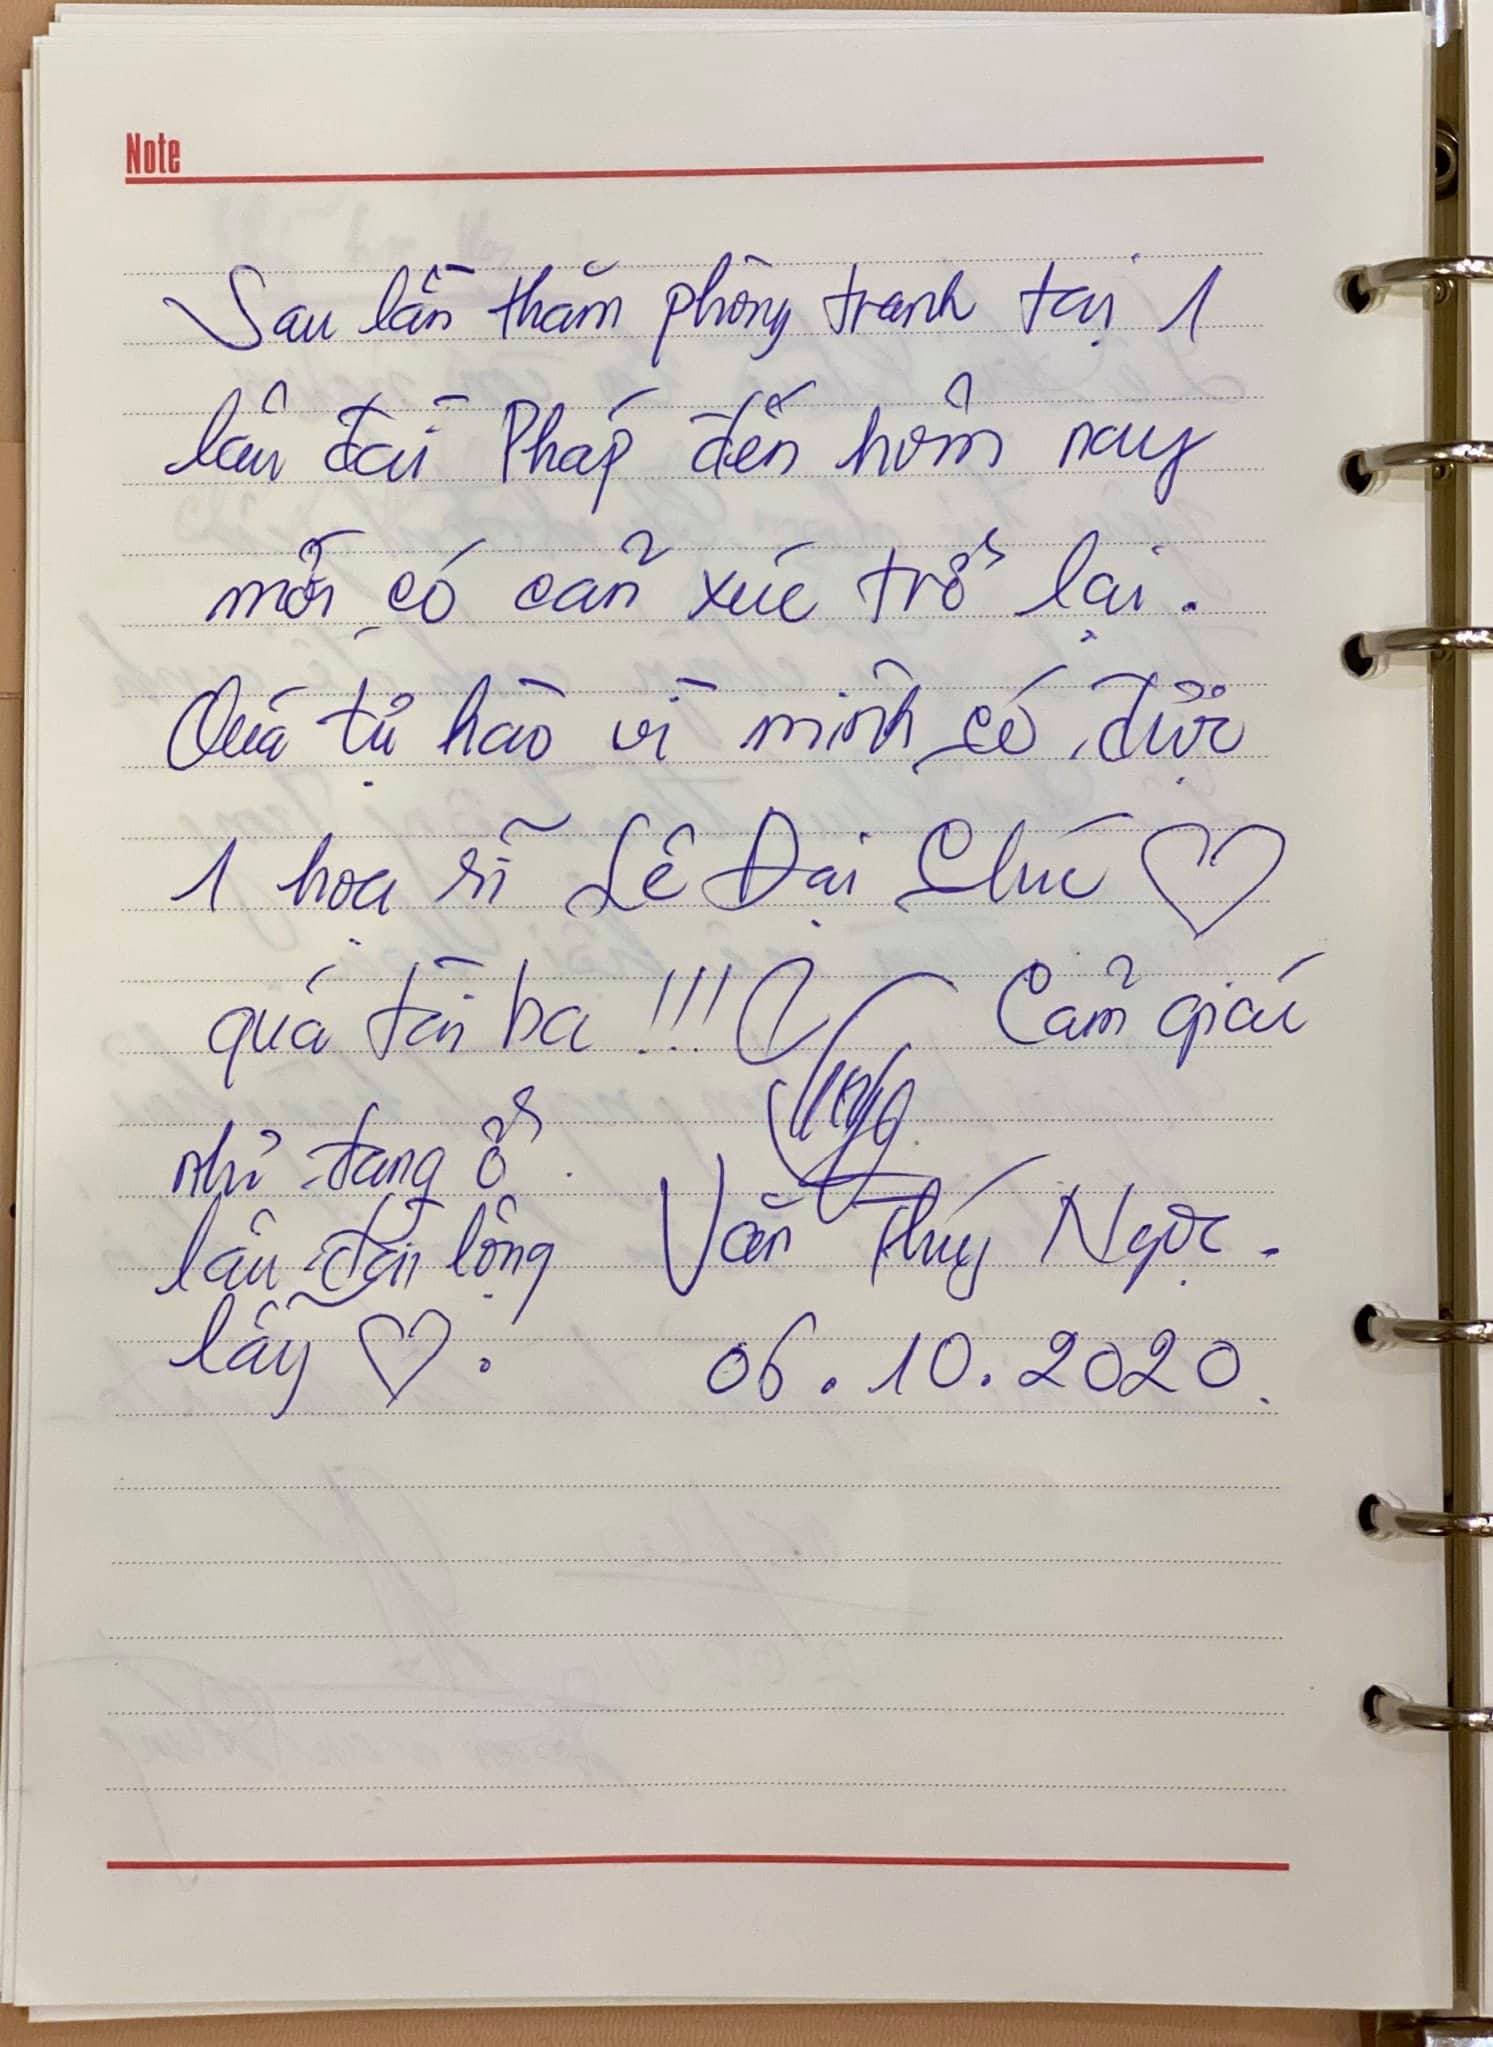 Note
Sau lần thăm phòng tranh tại 1
lâu đài Pháp đến hôm nay
mới có cảm xúc trở lại.
Quá tự hào vì mình có được
1 họa sĩ Lê Đại Chúc
quá tài ba !!! Cảm giác
như đang ở
lâu đài lộng
lẫy .
Văn Thúy Ngọc.
06.10.2020.